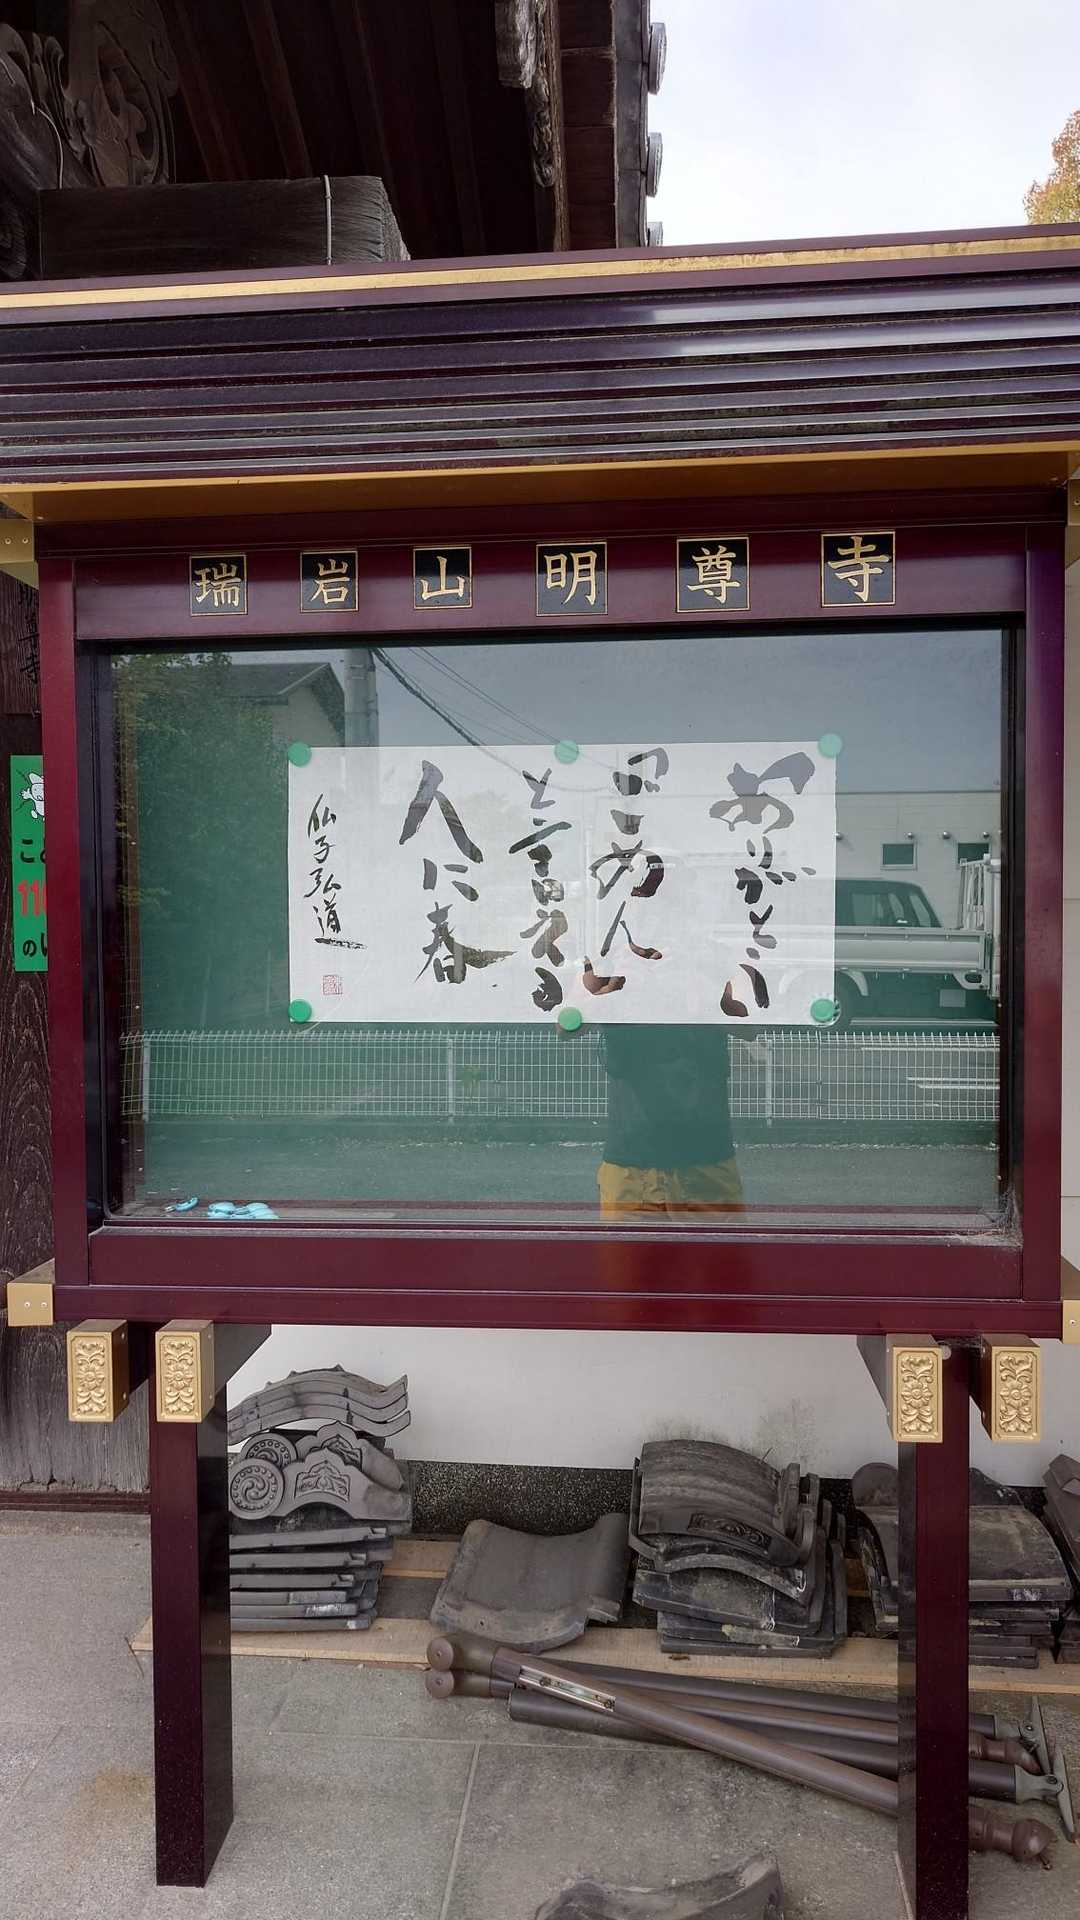 瑞岩山明尊寺
ありがとう
ごめん
と言える
人に春
仏子弘道
こ
110
のい